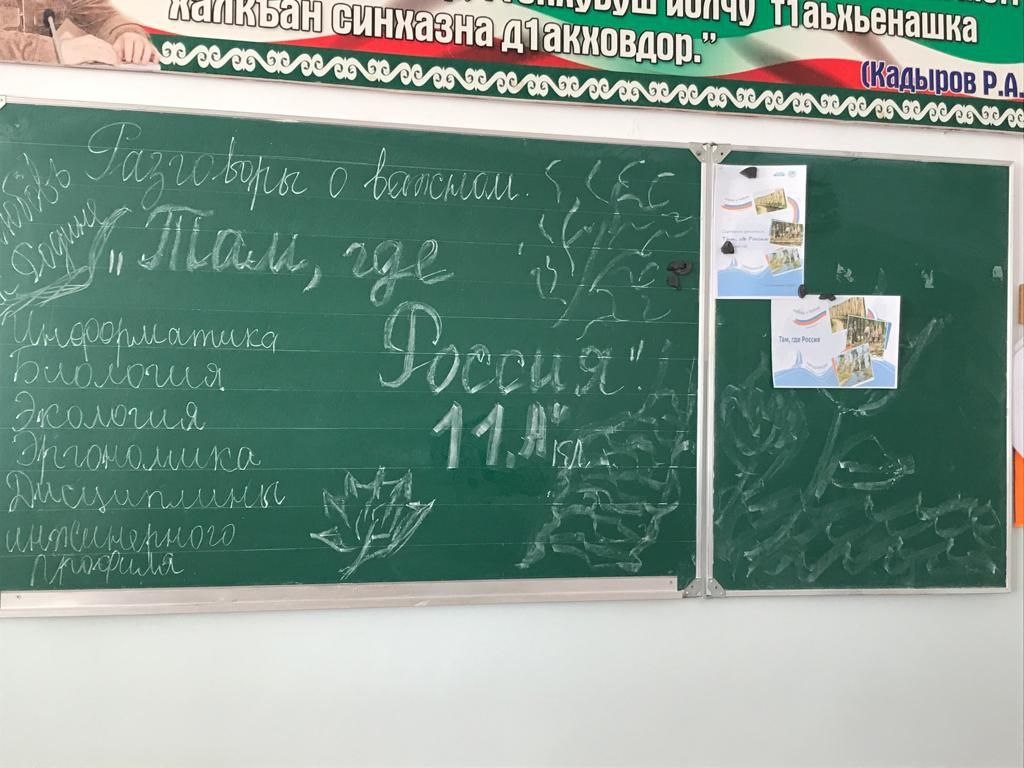 йолчу т1аьхьенашка
халкъан синхазна д1акховдор."
(Кадыров Р.А.
Разговоры о важном.
Родине
"Там, где
Россия".
11."А" кл.
Информатика
Биология
Экология
Эргономика
Дисциплины
инженерного
профиля
Там, где Россия
Там, где Россия